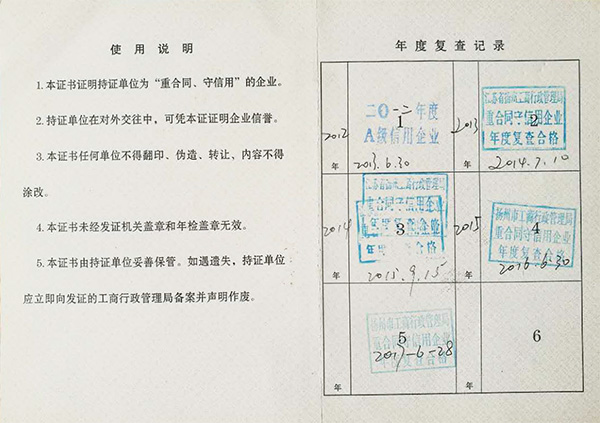 使用说明
1.本证书证明持证单位为“重合同、守信用”的企业。
2.持证单位在对外交往中，可凭本证证明企业信誉。
3.本证书任何单位不得翻印、伪造、转让、内容不得
涂改。
4.本证书未经发证机关盖章和年检盖章无效。
5.本证书由持证单位妥善保管。如遇遗失，持证单位
应立即向发证的工商行政管理局备案并声明作废。
年度复查记录
2012
年
1
二〇一二年度
A级信用企业
2013.6.30
2013
年
2
工商行政管理局
重合同守信用企业
年度复查合格
2014.7.10
2014
年
3
工商行政管理局
重合同守信用企业
年度复查合格
2015.9.15
2015
年
4
扬州市工商行政管理局
重合同守信用企业
年度复查合格
2016.6.30
年
5
扬州市工商行政管理局
重合同守信用企业
年度复查合格
2017-6-28
年
6